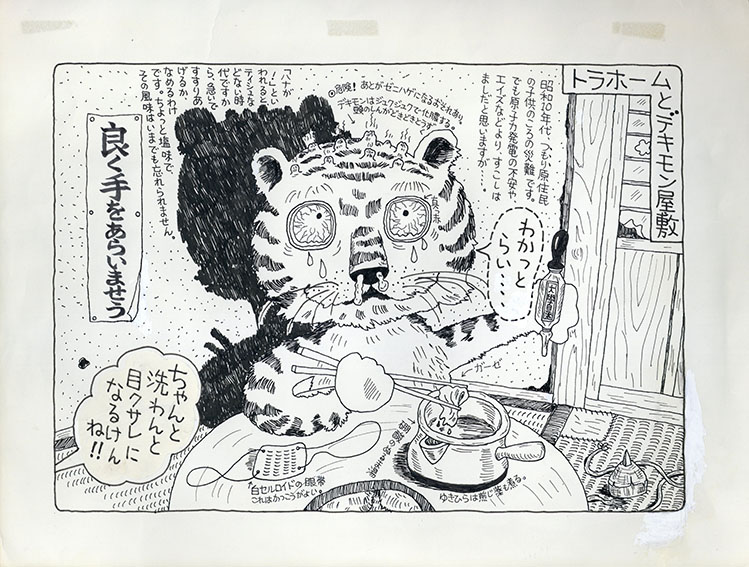 トラホームとデキモン屋敷
昭和0年代、つもい原住民
の子供のころの災難です。
でも原子力発電の不安や
エイズなどより、すこしは
ましだと思いますか…
◎危険!あとがゼニハゲになるおそれあり。
デキモンはジュクジュクで化膿する。
頭のしんがどきどきとうずく
「ハナが
!」といい
われると
ティシュな
どない時
代ですか
ら、急いで
すすりあ
げるか
なめるわけ
です。ちょっと塩味で
その風味はいまでも忘れられません。
良く手をあらいませう
わかっと
らい…
大学目薬
ちゃんと
洗わんと
目クサレに
なるけん
ね!!
ガーゼ
白セルロイドの眼帯
これはかっこうがよい。
ゆきひらは煎じ薬も煮る。